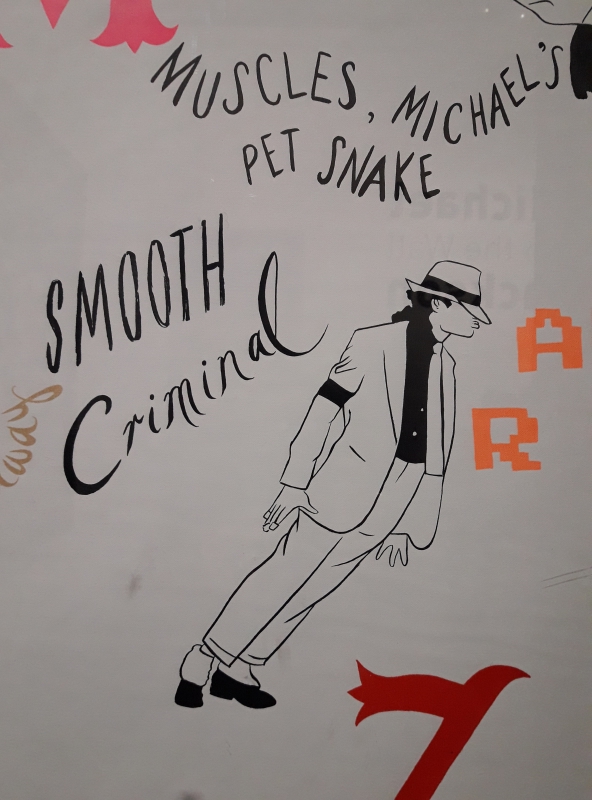 MUSCLES, MICHAEL'S
PET SNAKE
SMOOTH
Criminal
way
A
R
7